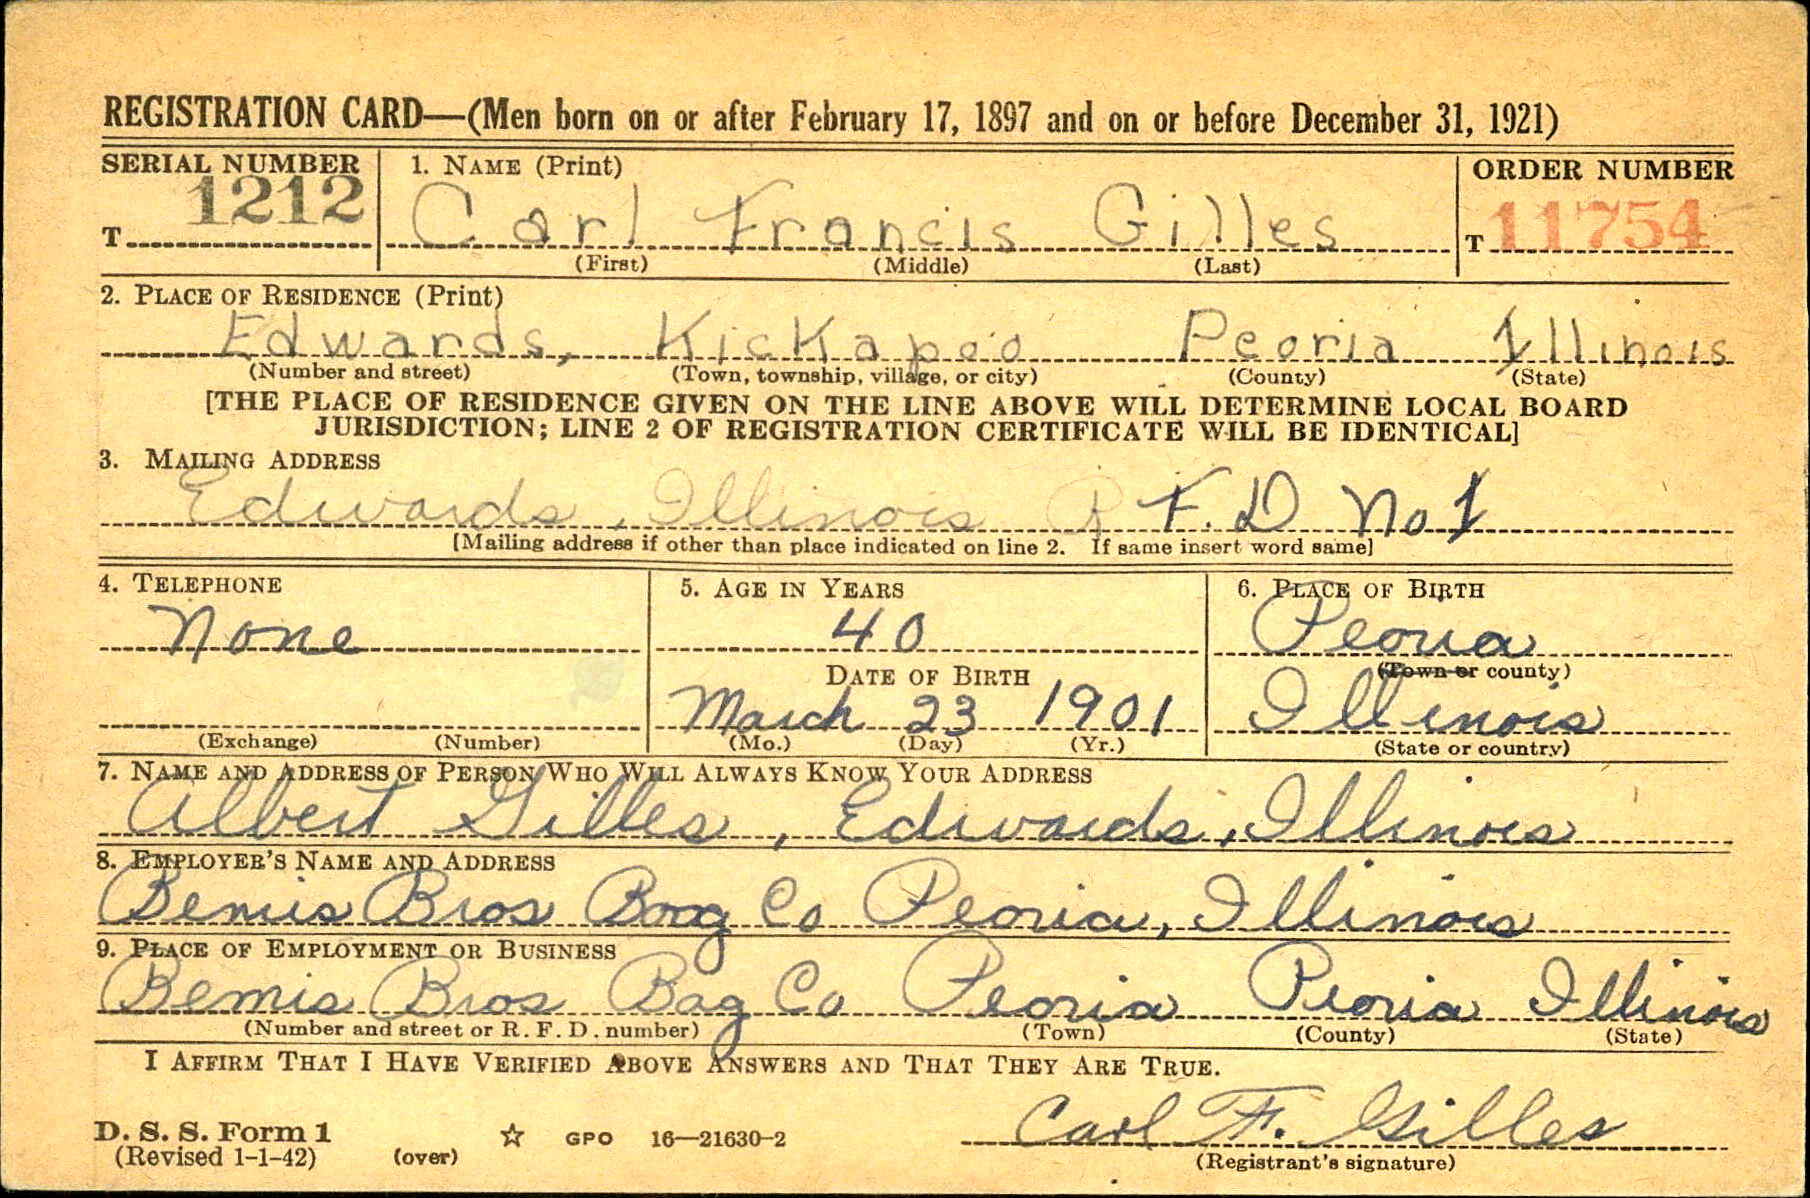 REGISTRATION CARD—(Men born on or after February 17, 1897 and on or before December 31, 1921)
SERIAL NUMBER 1. NAME (Print) ORDER NUMBER
T 1212 Carl Francis Gilles T 11754
(First) (Middle) (Last)
2. PLACE OF RESIDENCE (Print)
Edwards, Kickapoo Peoria Illinois
(Number and street) (Town, township, village, or city) (County) (State)
[THE PLACE OF RESIDENCE GIVEN ON THE LINE ABOVE WILL DETERMINE LOCAL BOARD
JURISDICTION; LINE 2 OF REGISTRATION CERTIFICATE WILL BE IDENTICAL]
3. MAILING ADDRESS
Edwards, Illinois R F.D No 1
[Mailing address if other than place indicated on line 2. If same insert word same]
4. TELEPHONE 5. AGE IN YEARS 6. PLACE OF BIRTH
None 40 Peoria
DATE OF BIRTH (Town or county)
March 23 1901 Illinois
(Exchange) (Number) (Mo.) (Day) (Yr.) (State or country)
7. NAME AND ADDRESS OF PERSON WHO WILL ALWAYS KNOW YOUR ADDRESS
Albert Gilles, Edwards, Illinois
8. EMPLOYER'S NAME AND ADDRESS
Bemis Bros Bag Co Peoria, Illinois
9. PLACE OF EMPLOYMENT OR BUSINESS
Bemis Bros Bag Co Peoria Peoria Illinois
(Number and street or R. F. D. number) (Town) (County) (State)
I AFFIRM THAT I HAVE VERIFIED ABOVE ANSWERS AND THAT THEY ARE TRUE.
Carl F. Gilles
D. S. S. Form 1 ☆ GPO 16—21630-2
(Revised 1-1-42) (over) (Registrant's signature)